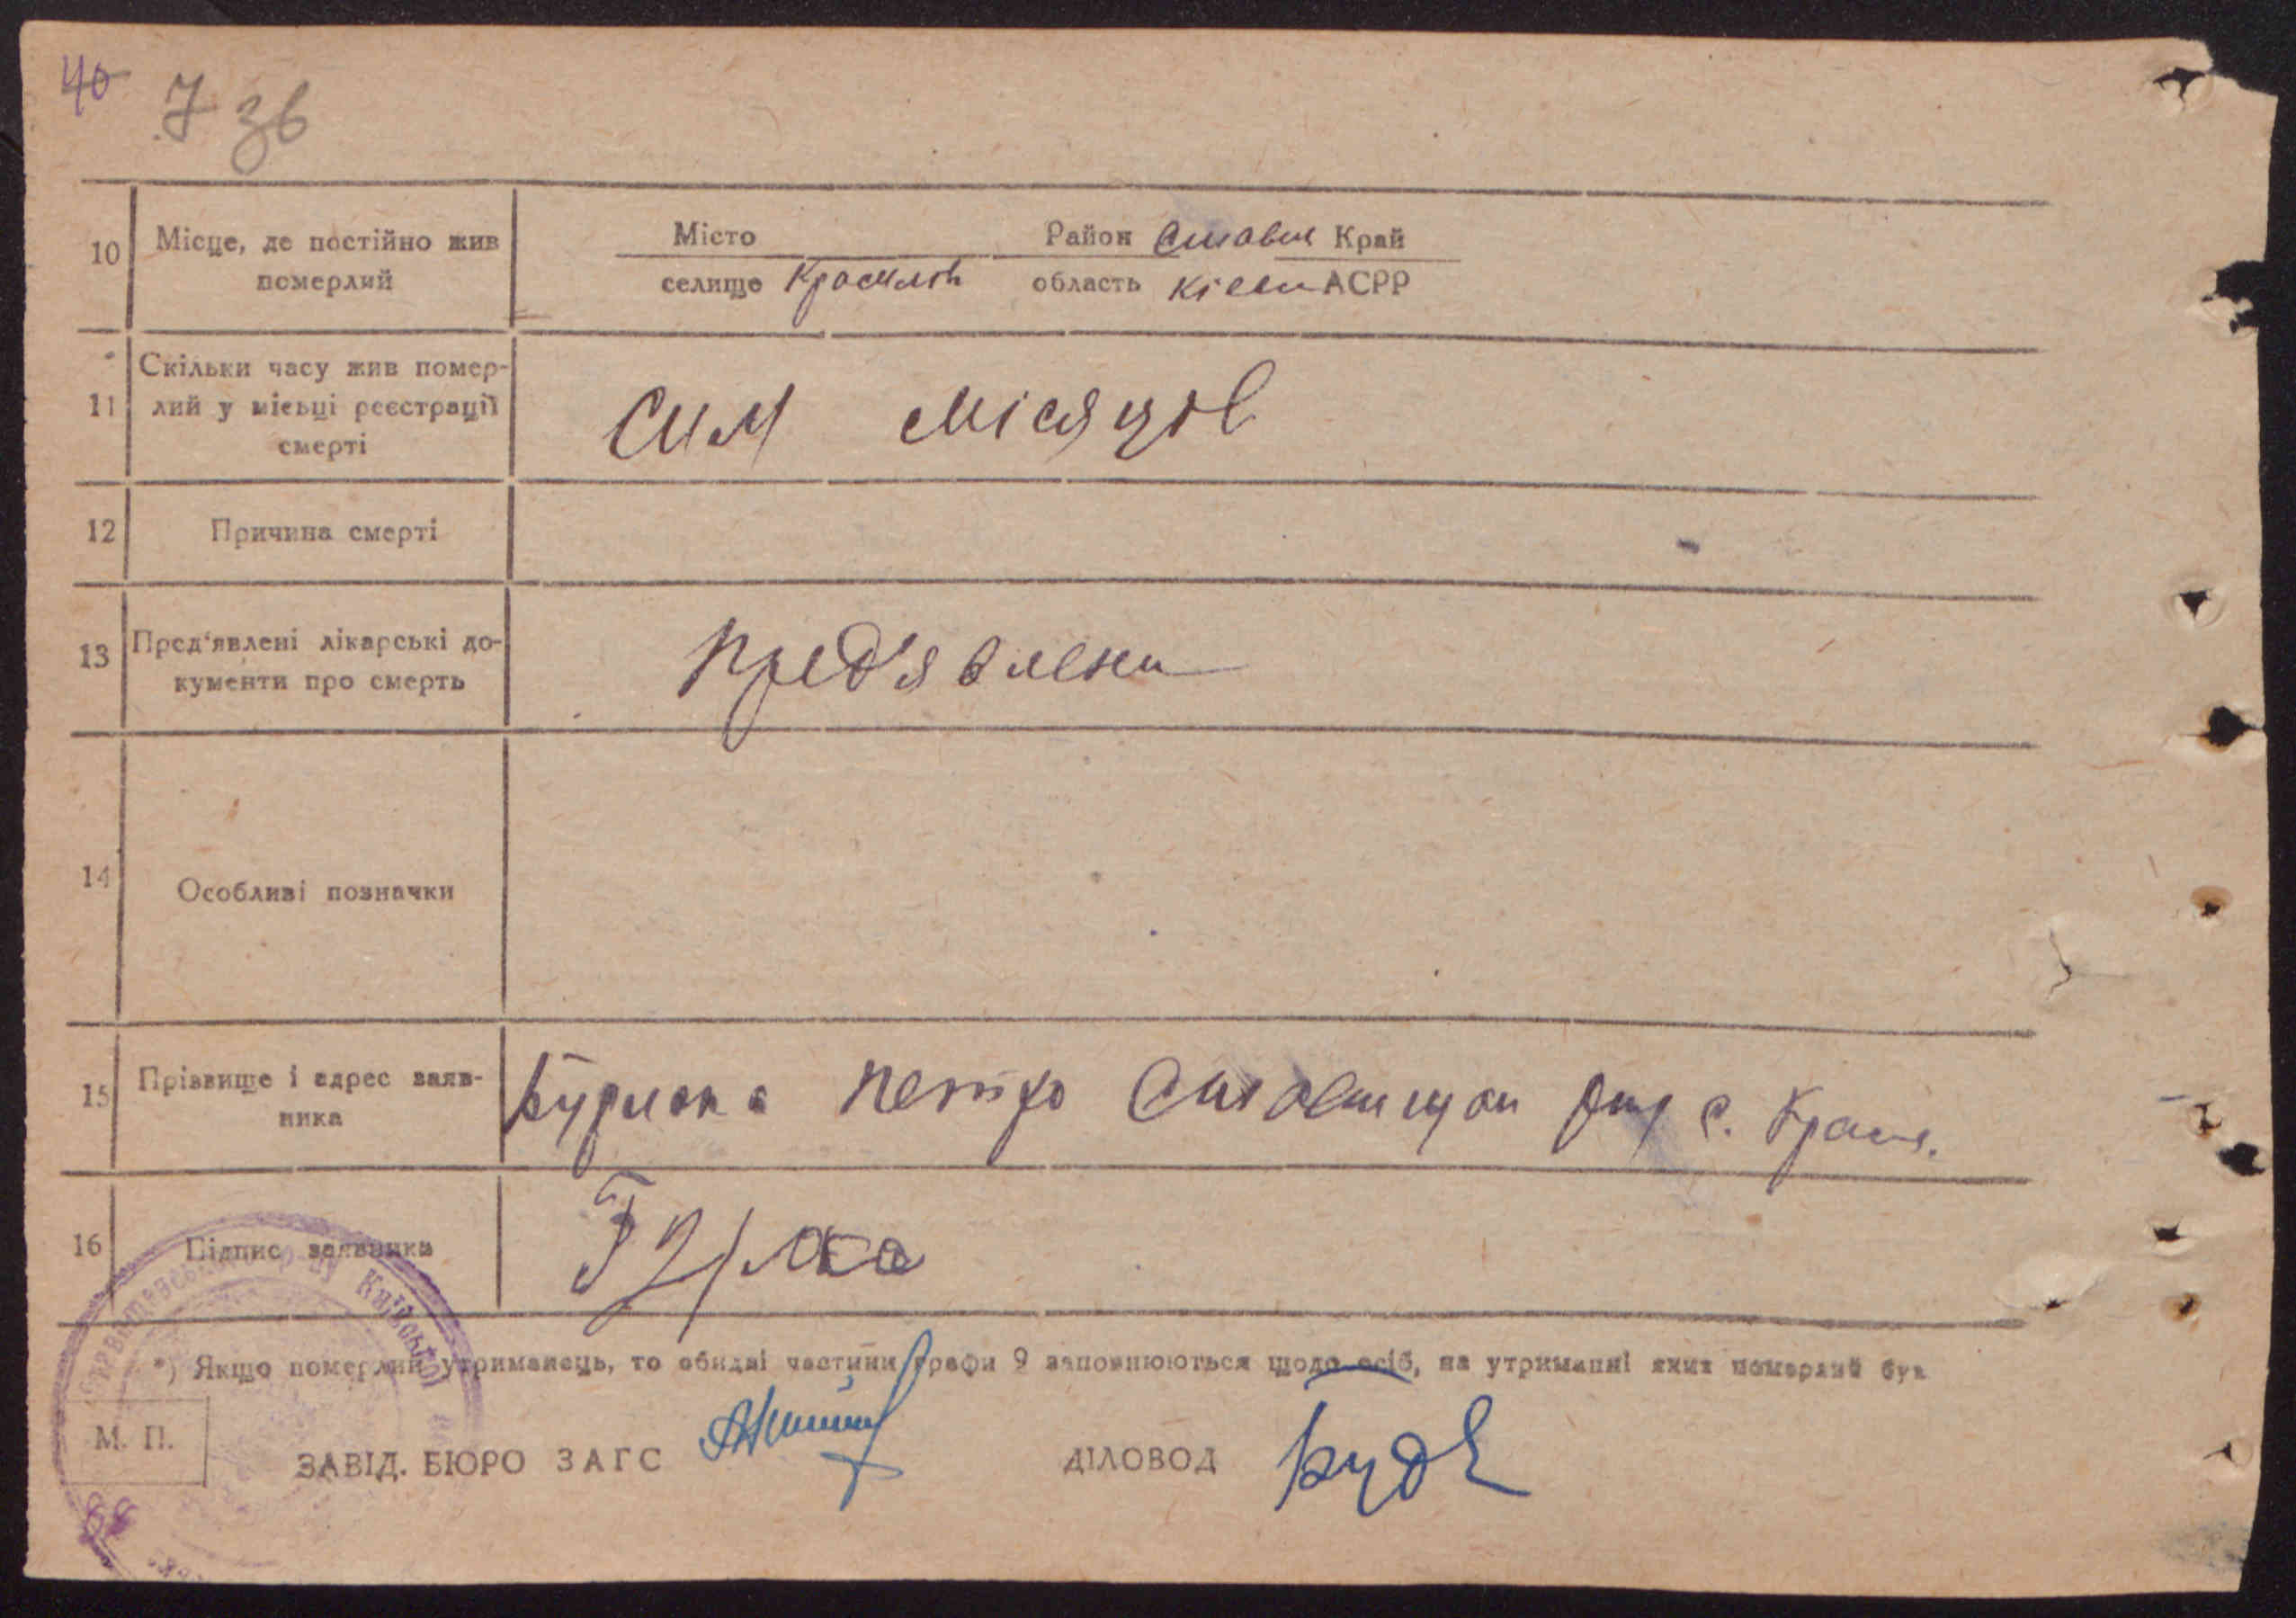 40
7 зв
10 Місце, де постійно жив померлий
Місто Район Ставищ Край
селище Красилів область Київ АСРР
11 Скільки часу жив помер-
лий у місьці реєстрації
смерті
сім місяців
12 Причина смерті
13 Пред'явлені лікарські до-
кументи про смерть
пред'явлени
14 Особливі позначки
15 Прізвище і адрес заяв-
ника
Петро с. Крас.
16 Підпис заявника
Київської
*) Якщо померлий утриманець, то обидві частини графи 9 заповнюються щодо осіб, на утриманні яких померлий був
М. П.
ЗАВІД. БЮРО ЗАГС ДІЛОВОД